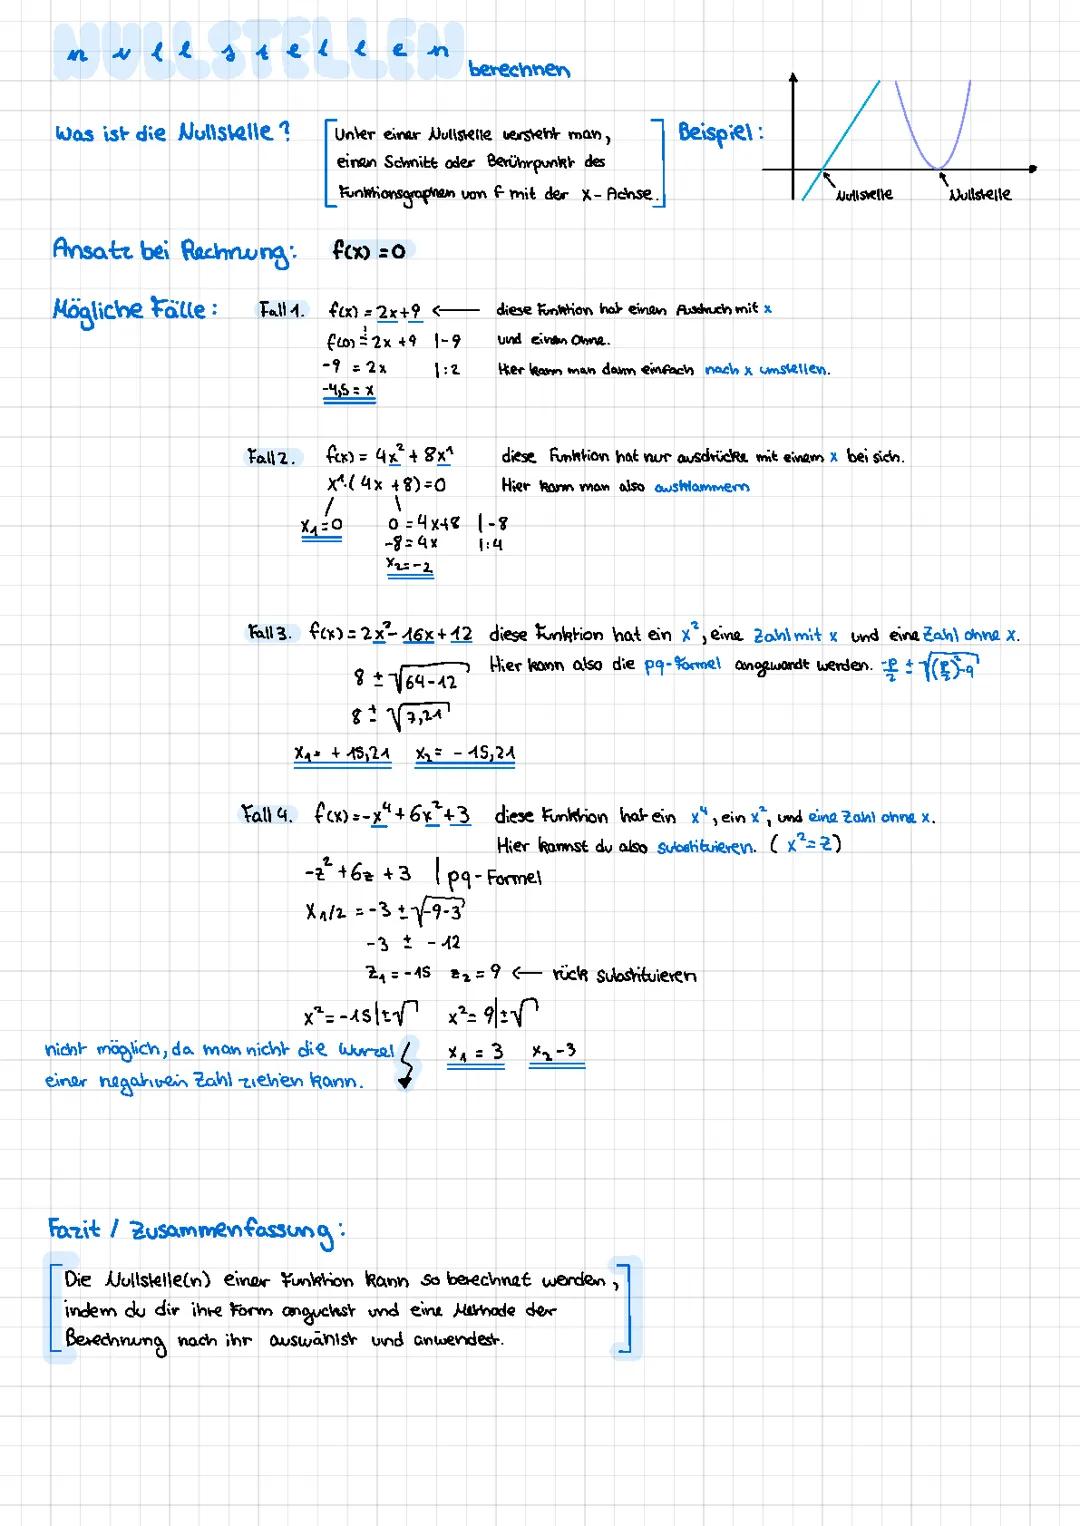 NULLSTELLEN
nullstellen berechnen
Was ist die Nullstelle?
Unter einer Nullstelle versteht man,
einen Schnitt oder Berührpunkt des
Funktionsgraphen von f mit der x-Achse.
Beispiel:
Nullstelle
Nullstelle
Ansatz bei Rechnung: f(x)=0
Mögliche Fälle:
Fall 1. f(x) = 2x+9 ← diese Funktion hat einen Ausdruck mit x
f(x) = 2x +9 |-9 und einen Ohne.
-9 = 2x |:2 Hier kann man dann einfach nach x umstellen.
-4,5 = x
Fall 2. f(x) = 4x² + 8x¹ diese Funktion hat nur ausdrücke mit einem x bei sich.
x¹·(4x +8)=0 Hier kann man also ausklammern
x₁=0 0 = 4x+8 |-8
-8 = 4x |:4
x₂=-2
Fall 3. f(x) = 2x²- 16x + 12 diese Funktion hat ein x², eine Zahl mit x und eine Zahl ohne x.
Hier kann also die pq-Formel angewandt werden. -p/2 ± √((p/2)²-q)
8 ± √64-12
8 ± √7,21
x₁= + 15,21 x₂= - 15,21
Fall 4. f(x)=-x⁴+ 6x²+3 diese Funktion hat ein x⁴, ein x², und eine Zahl ohne x.
Hier kannst du also substituieren. (x²=z)
-z² +6z +3 | pq-Formel
x₁/₂ = -3 ± √-9-3
-3 ± -12
z₁ = -15 z₂ = 9 ← rück substituieren
x²=-15|±√ x²= 9|±√
nicht möglich, da man nicht die Wurzel
einer negativein Zahl ziehen kann.
x₁ = 3 x₂-3
Fazit / Zusammenfassung:
Die Nullstelle(n) einer Funktion kann so berechnet werden,
indem du dir ihre Form anguckst und eine Methode der
Berechnung nach ihr auswählst und anwendest.